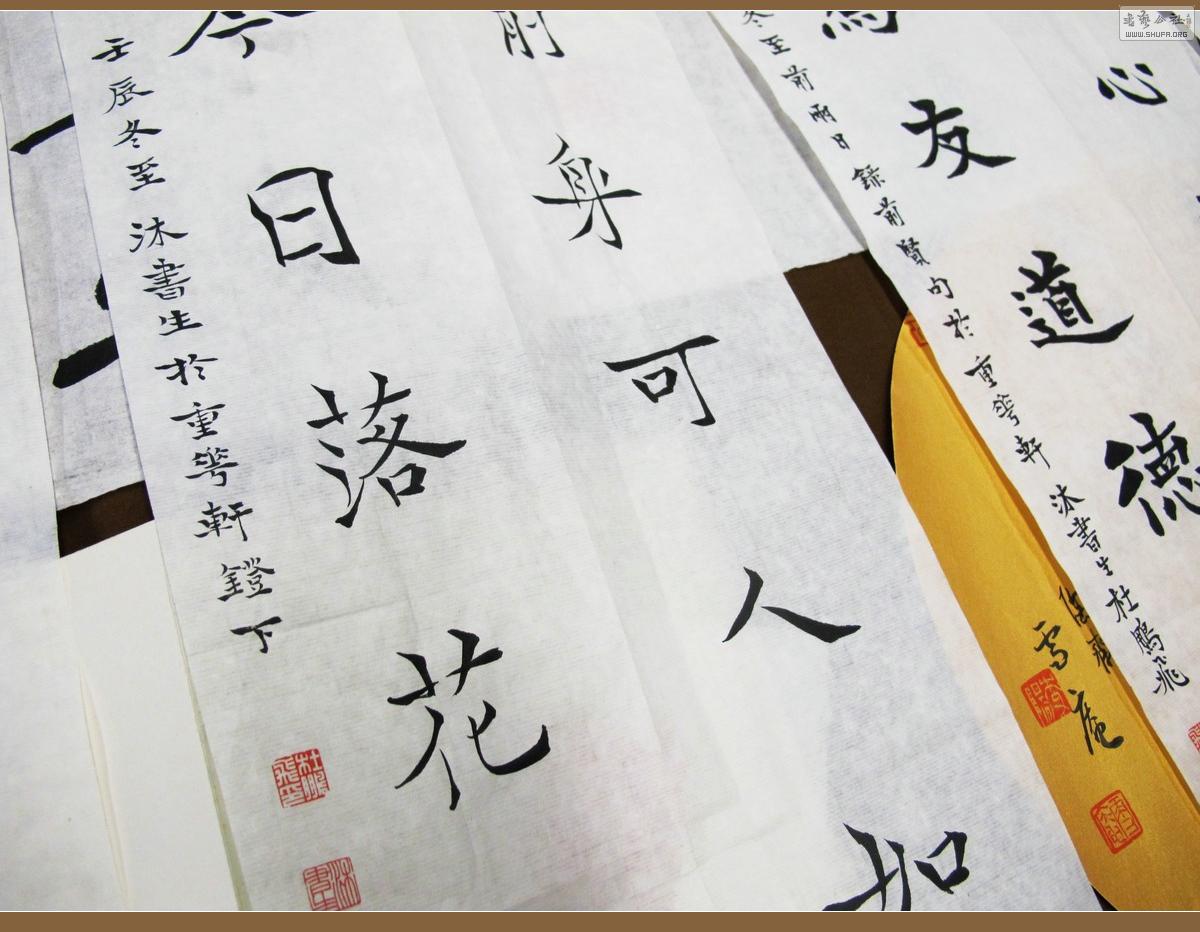 心
友道德
冬至前兩日錄前賢句於重華軒沐書生杜鵬飛
雪庵
前身可人如
今日落花
壬辰冬至沐書生於重華軒鐙下
杜鵬飛印
WWW.SHUFA.ORG